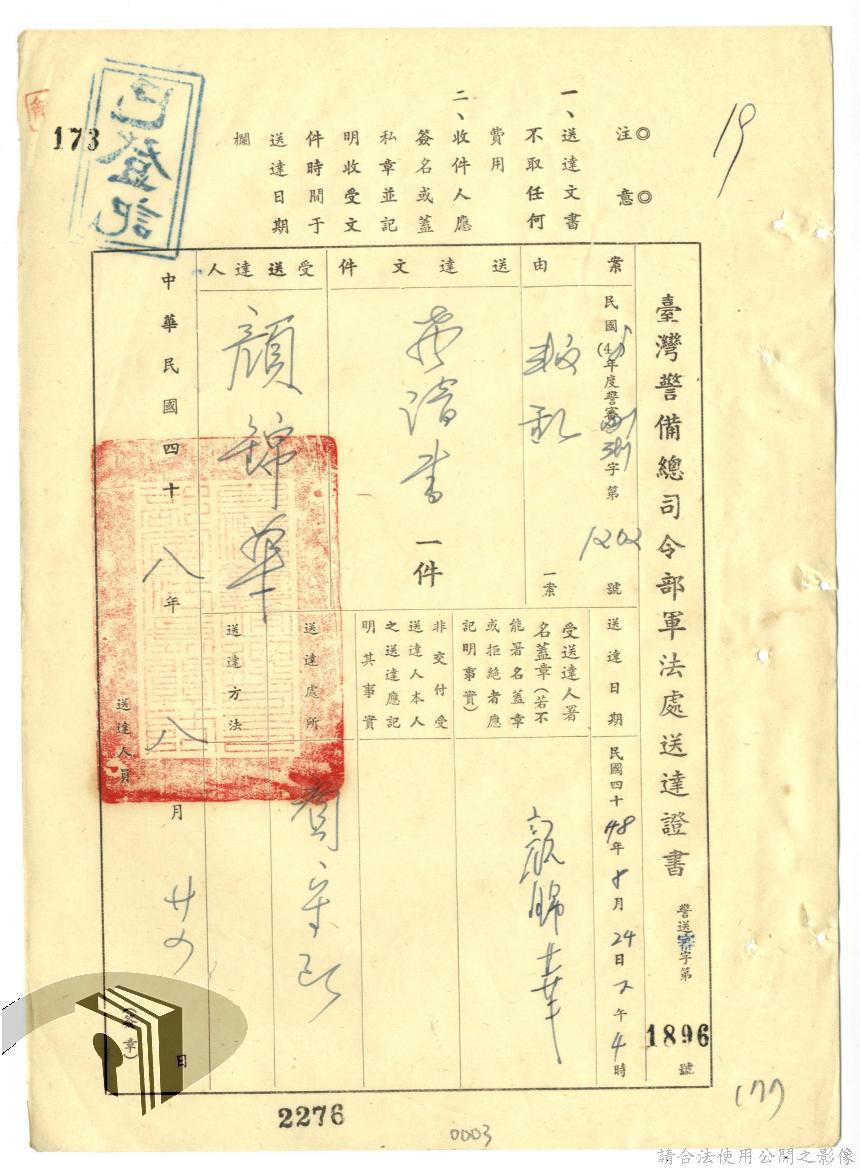 19
173
已登記
◎注意◎
一、送達文書
不取任何
費用
二、收件人應
簽名或蓋
私章並記
明收受文
件時間于
送達日期
欄
臺灣警備總司令部軍法處送達證書
警送審字第
1896
號
案由
民國(48)年度警審
字第
1202
號
叛亂
一案
送達文件
一件
受送達人
顏錦華
送達日期
民國四十48年8月24日下午4時
受送達人署
名蓋章(若不
能署名蓋章
或拒絕者應
記明事實)
顏錦華
非交付受
送達人本人
之送達應記
明其事實
送達處所
送達方法
中華民國四十八年八月廿四日
送達人員
(簽章)
2276
0003
177
請合法使用公開之影像